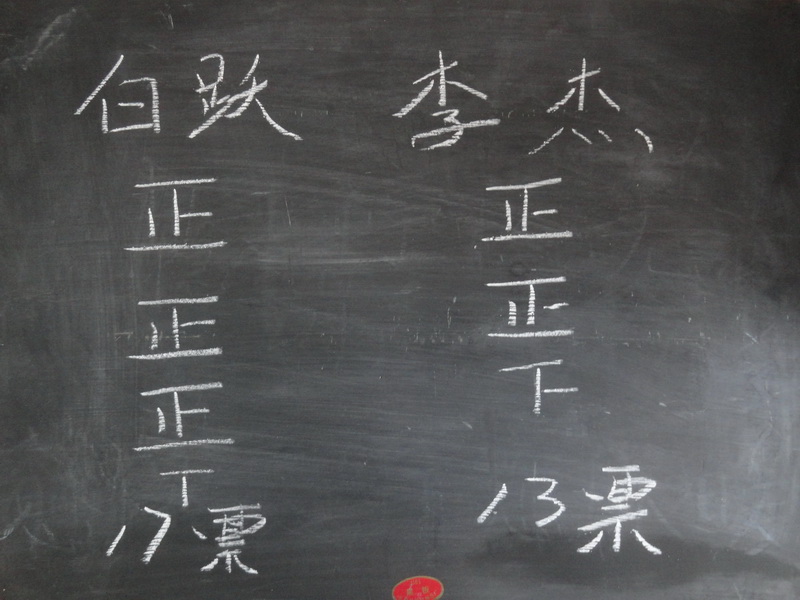 白跃 李杰
正 正
正 正
正 下
丅
17票 13票